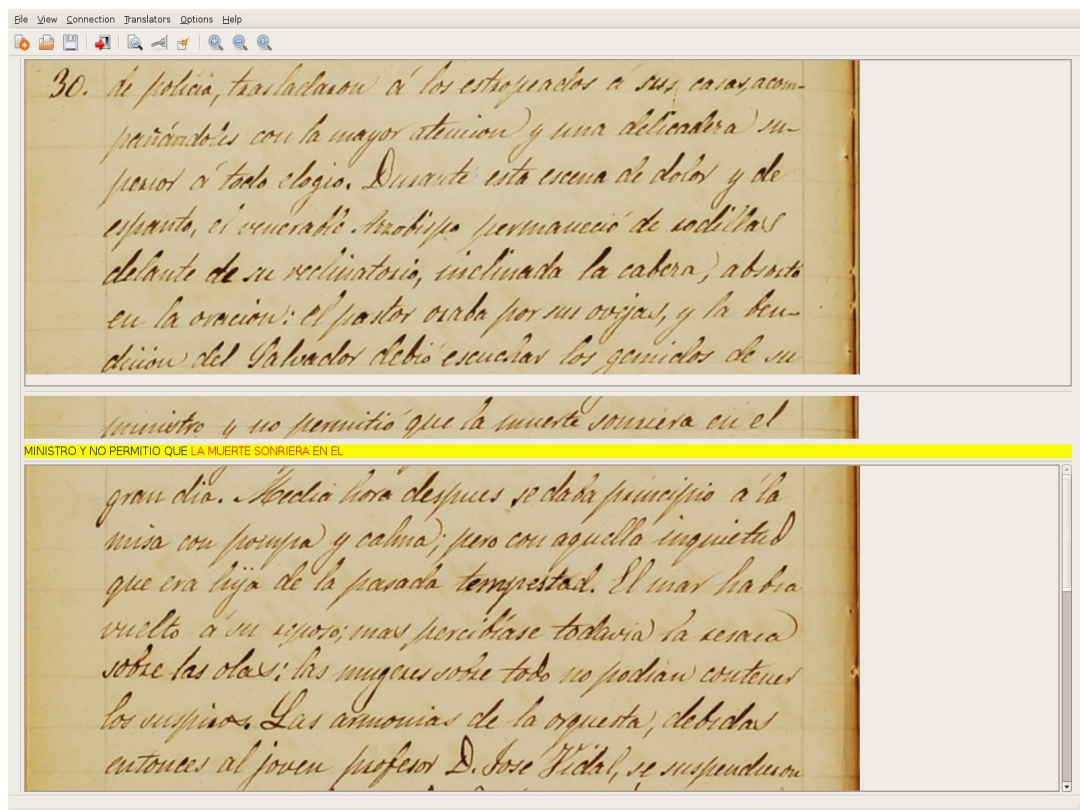 File View Connection Translators Options Help
30. de policia, trasladaron á los estropeados á sus casas, acom-
pañándoles con la mayor atencion y una delicadeza su-
perior á todo elogio. Durante esta escena de dolor y de
espanto, el venerable Arzobispo permaneció de rodillas
delante de su reclinatorio, inclinada la cabeza, absorto
en la oracion: el pastor oraba por sus ovejas, y la ben-
dicion del Salvador debió escuchar los gemidos de su
ministro y no permitió que la muerte sonriera en el
MINISTRO Y NO PERMITIO QUE LA MUERTE SONRIERA EN EL
gran dia. Media hora despues se daba principio á la
misa con pompa y calma; pero con aquella inquietud
que era hija de la pasada tempestad. El mar habia
vuelto á su reposo; mas percibíase todavia la resaca
sobre las olas; las mugeres sobre todo no podian contener
los suspiros. Las armonias de la orquesta, debidas
entonces al joven profesor D. José Vidal, se suspendieron